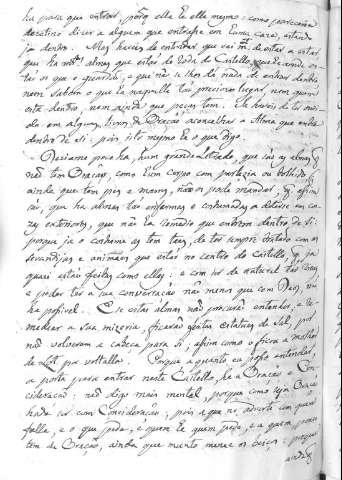 ha para que entrar, porq̃ ella he elle mesmo: como pareceria
desatino dizer a alguem que entrasse em huma caza, estando
ja dentro. Mas haveis de entender que vai m.to de estar a estar
que ha m.tas almas que estaõ na roda do Castello, que he aonde es-
taõ os que o guardaõ, e que naõ se lhes dá nada de entrar dentro
nem sabem o que ha naquelle taõ preciozo lugar, nem quem
está dentro, nem ainda que peças tem. Já haveis de ter ouvi-
do em alguns livros de Oraçaõ aconselhar a Alma que entre
dentro de si: pois isto mesmo he o que digo.
Deziame pouco ha, hum grande Letrado, que saõ as almas q̃
naõ tem Oraçaõ, como hum corpo com parlezia ou tolhido, q̃
ainda que tem pes e maons, naõ os pode mandar, q̃ assim
saõ, que ha almas taõ enfermas e costumadas a estarse em cou-
zas exteriores, que naõ ha remedio que entrem dentro de si:
porque ja o costume as tem taes, de ter sempre tratado com as
sevandijas e animaes que estaõ no cerco do Castello, q̃ ja
quazi estaõ feitas como elles: e com ser de natural taõ ricas,
e poder ter a sua conversaçaõ naõ menos que com Deos, naõ
ha possivel. E se estas almas naõ procuraõ entender, e re-
mediar a sua mizeria, ficaraõ feitas estatuas de Sal, por
naõ volverem a cabeça para si; assim como o ficou a molher
de Lot por voltalla. Porque a quanto eu posso entender,
a porta para entrar neste Castello, he a Oraçaõ e Con-
sideraçaõ: naõ digo mais mental, porque como seja Oraçaõ
ha de ser com Consideraçaõ; pois a que naõ adverte com quem
falla, e o que pede, e quem he quem pede, e a quem, pouco
tem de Oraçaõ, ainda que muito menee os beiços; porque